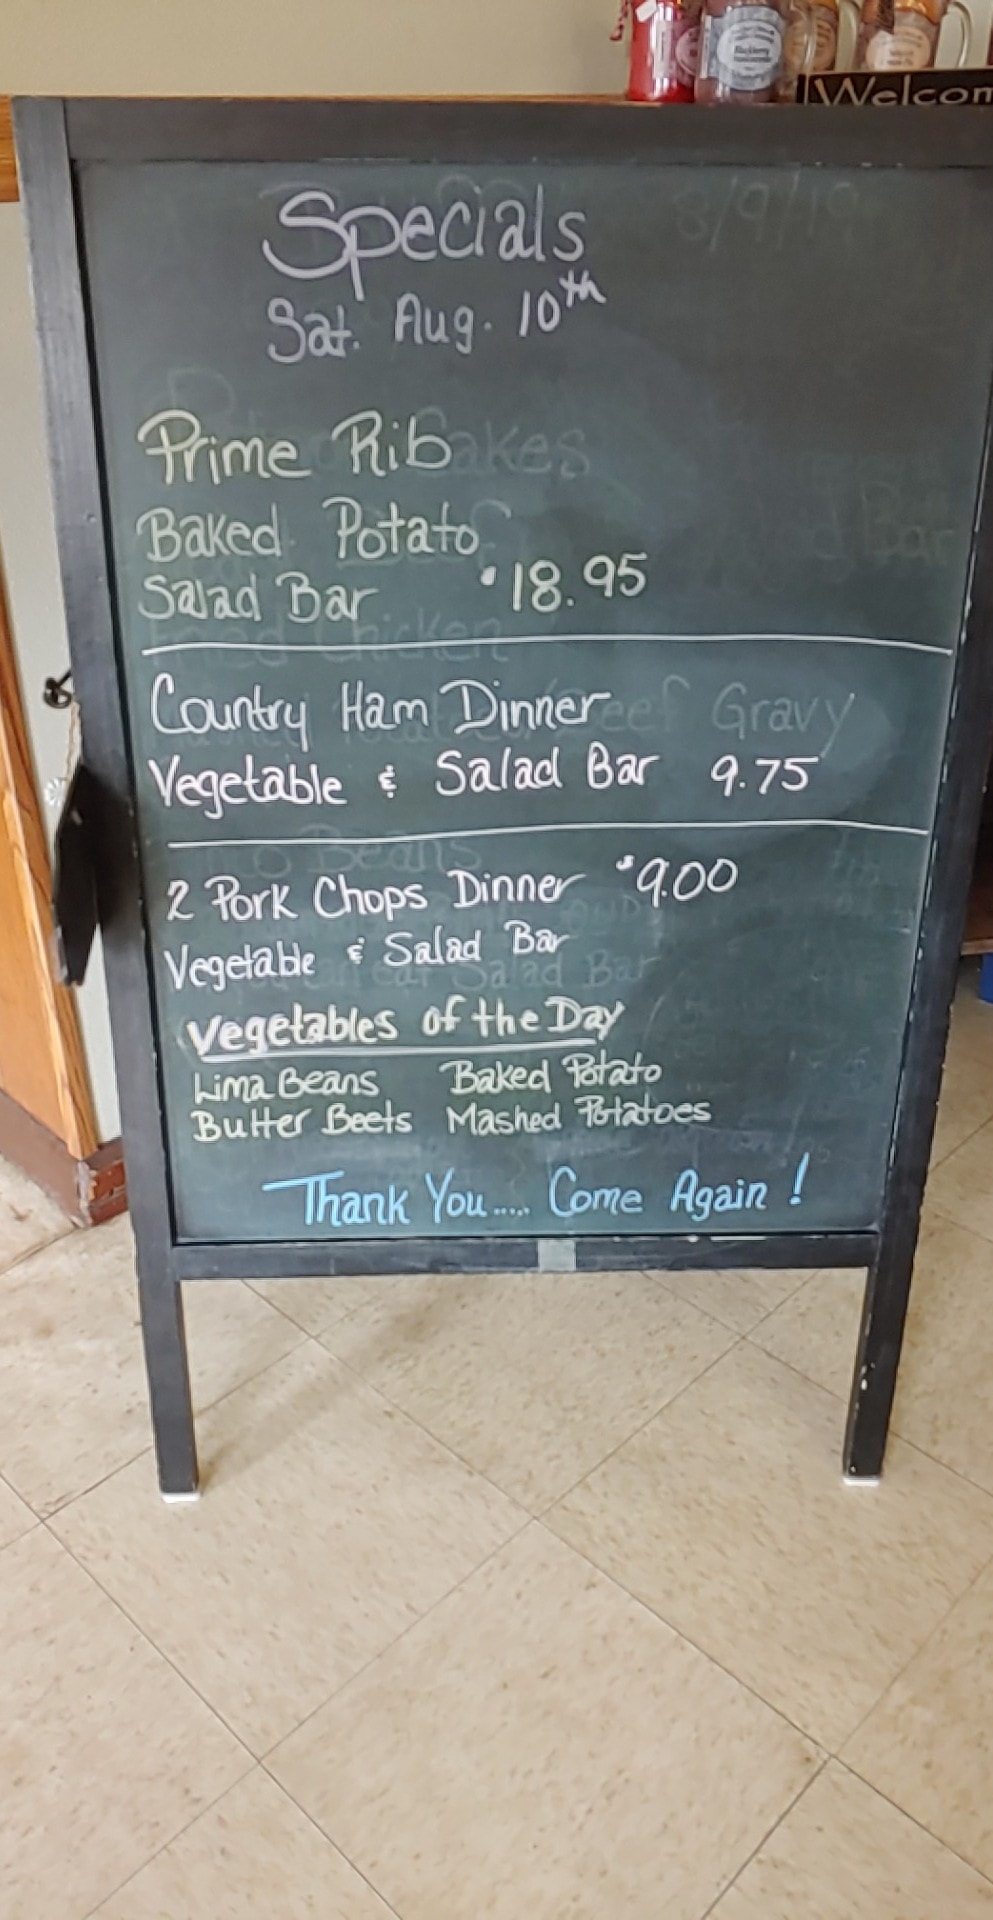 Welcom
Specials 8/9/19
Sat. Aug. 10th
Prime Rib Cakes
Baked Potato
Bar
Salad Bar $18.95
Fried Chicken
Country Ham Dinner Beef Gravy
Vegetable & Salad Bar 9.75
Beans
2 Pork Chops Dinner $9.00
Vegetable & Salad Bar
Salad Bar
Vegetables of the Day
Lima Beans Baked Potato
Butter Beets Mashed Potatoes
Thank You..... Come Again!